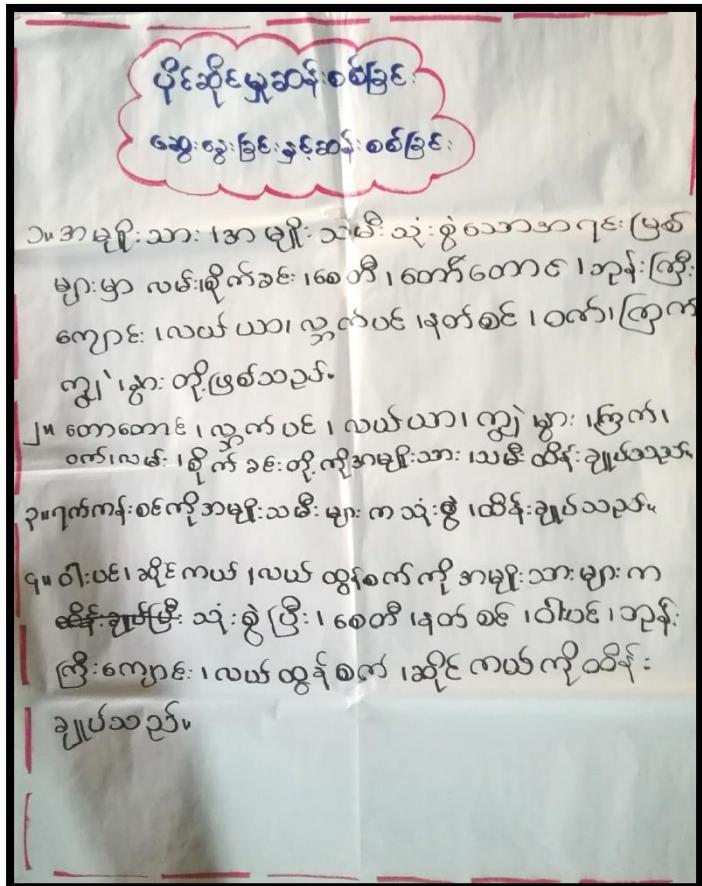 ပိုင်ဆိုင်မှုဆန်းစစ်ခြင်း
ဆွေးနွေးခြင်းနှင့်ဆန်းစစ်ခြင်း
၁။ အမျိုးသား၊ အမျိုးသမီး သုံးစွဲသောအရင်းမြစ်
များမှာ လမ်း၊ စိုက်ခင်း၊ စေတီ၊ တော်တောင်၊ ဘုန်းကြီး
ကျောင်း၊ လယ်ယာ၊ လ္ဘက်ပင်၊ နတ်စင်၊ ဝက်၊ ကြက်
ကျွဲ၊ နွား တို့ဖြစ်သည်။
၂။ တောတောင်၊ လ္ဘက်ပင်၊ လယ်ယာ၊ ကျွဲ နွား၊ ကြက်၊
ဝက်၊ လမ်း၊ စိုက်ခင်းတို့ကိုအမျိုးသား၊ သမီး ထိန်းချုပ်သည်။
၃။ ရက်ကန်းစင်ကိုအမျိုးသမီးများကသုံးစွဲ၊ ထိန်းချုပ်သည်။
၄။ ဝါးပင်၊ ဆိုင်ကယ်၊ လယ်ထွန်စက်ကိုအမျိုးသားများက
ထိန်းချုပ်ပြီး သုံးစွဲပြီး၊ စေတီ၊ နတ်စင်၊ ဝါးပင်၊ ဘုန်း
ကြီးကျောင်း၊ လယ်ထွန်စက်၊ ဆိုင်ကယ်ကိုထိန်း
ချုပ်သည်။